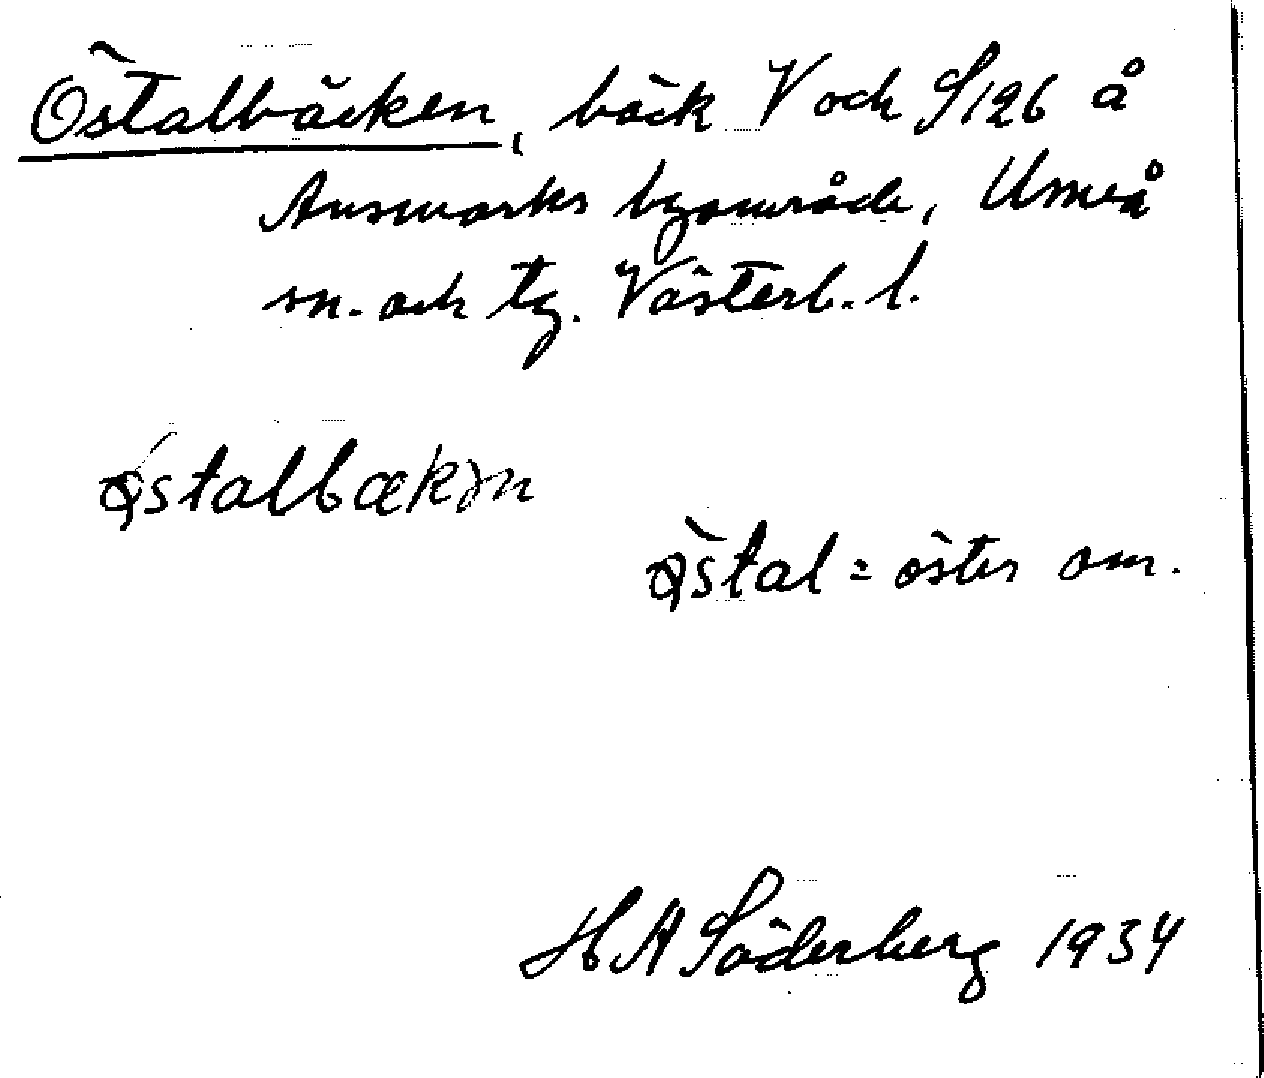 Östalbäcken, bäck V och S 126 å
Ansmarks byområde, Umeå
sn. och tg. Västerb. l.
Qstalbækən
Q̀stal = öster om.
H A Söderberg 1934